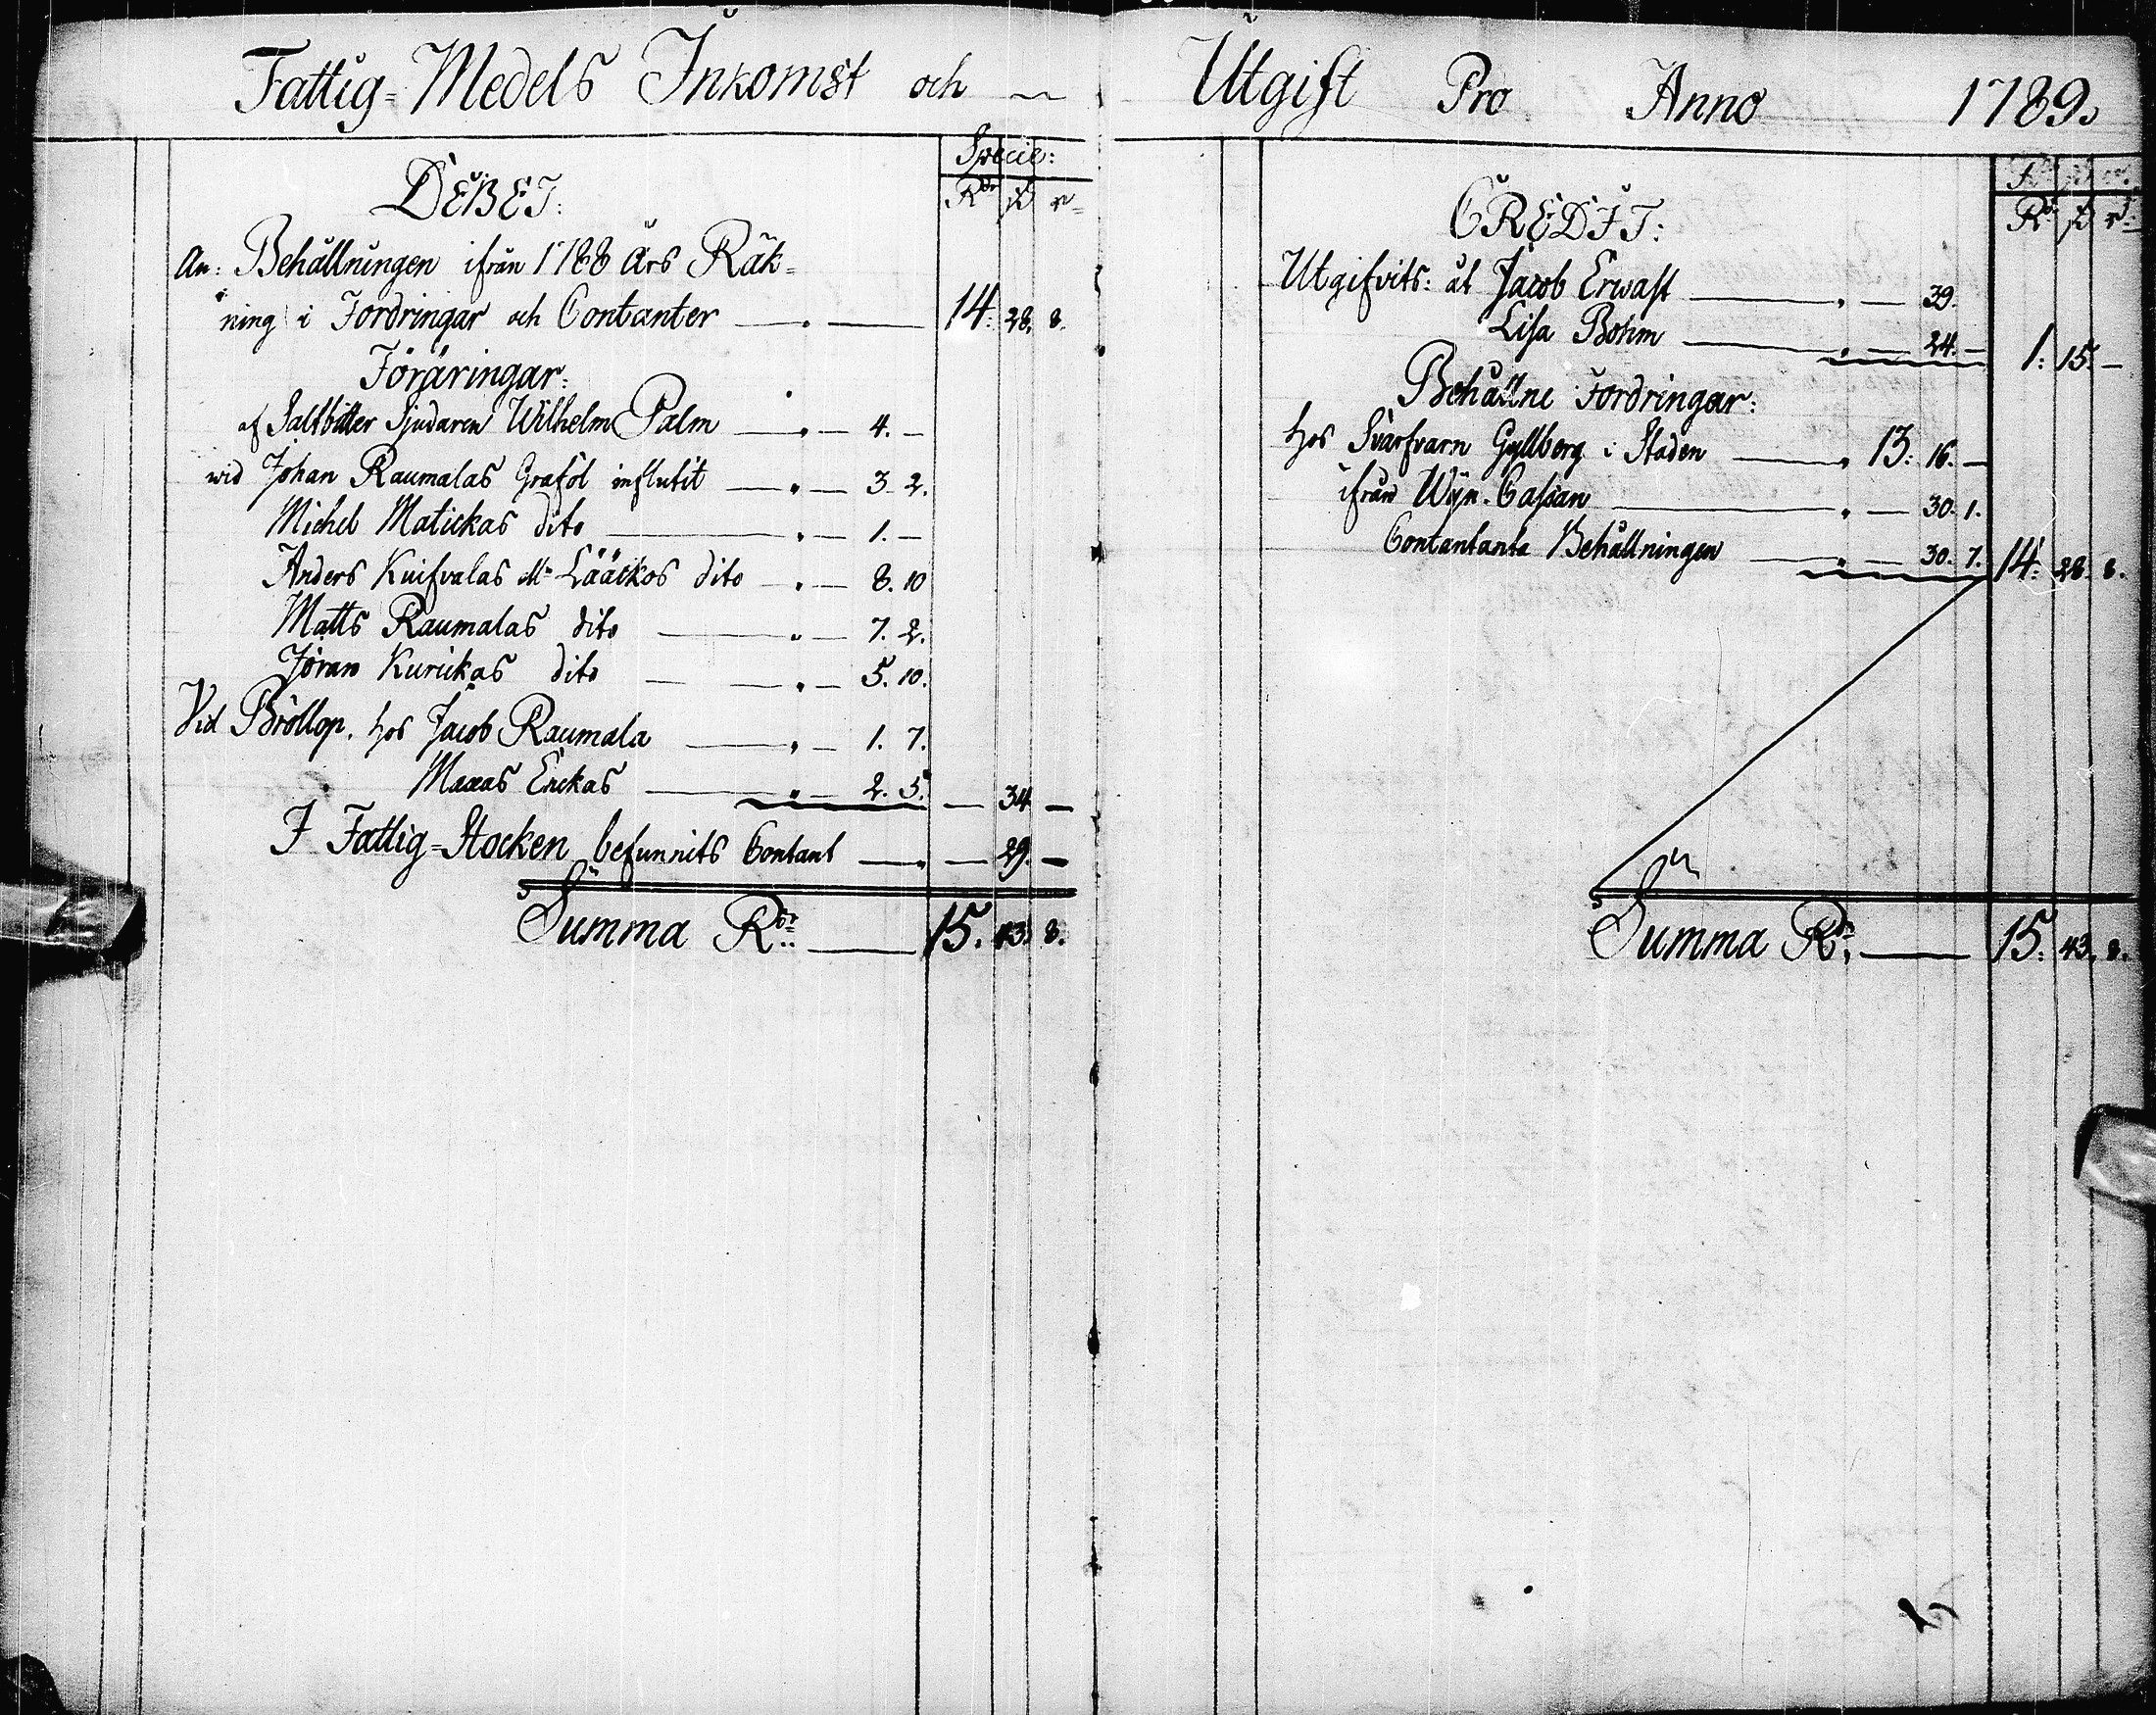 Fattig=Medels Inkomst och
DEBET:
Specie:
Rdr ß r
An: Behållningen ifrån 1788 Års Räk=
ning i Fordringar och Contanter — " — 14: 28. 8.
Föräringar:
af Saltbitter Sjudaren Wilhelm Palm — " — 4. —
wid Johan Raumalas Graföl influtit — " — 3. 2.
Michel Matickas dito — " — 1. —
Anders Knifvalas dito — " — 8. 10
Matts Raumalas dito — " — 7. 2.
Jöran Kurickas dito — " — 5. 10.
Vid Bröllop. hos Jacob Raumala — " — 1. 7.
Maxas Erickas — " — 2. 5. — 34 —
I Fattig=Stocken befunnits Contant — " — 29. —
Summa Rdr — 15. 43. 8.
Utgift Pro Anno 1789.
CREDIT:
Rdr ß r
Rdr ß r:
Utgifvits: åt Jacob Erwast — " — 39.
Lisa Bohm — " — 24. — 1: 15. —
Behållne Fordringar:
hos Svarfvarn Gyllberg i Staden — " 13: 16. —
ifrån Wijn-Cassan — " — 30. 1.
Contantanta Behållningen — " — 30. 7. 14: 28. 8.
Summa Rdr — 15: 43. 8.